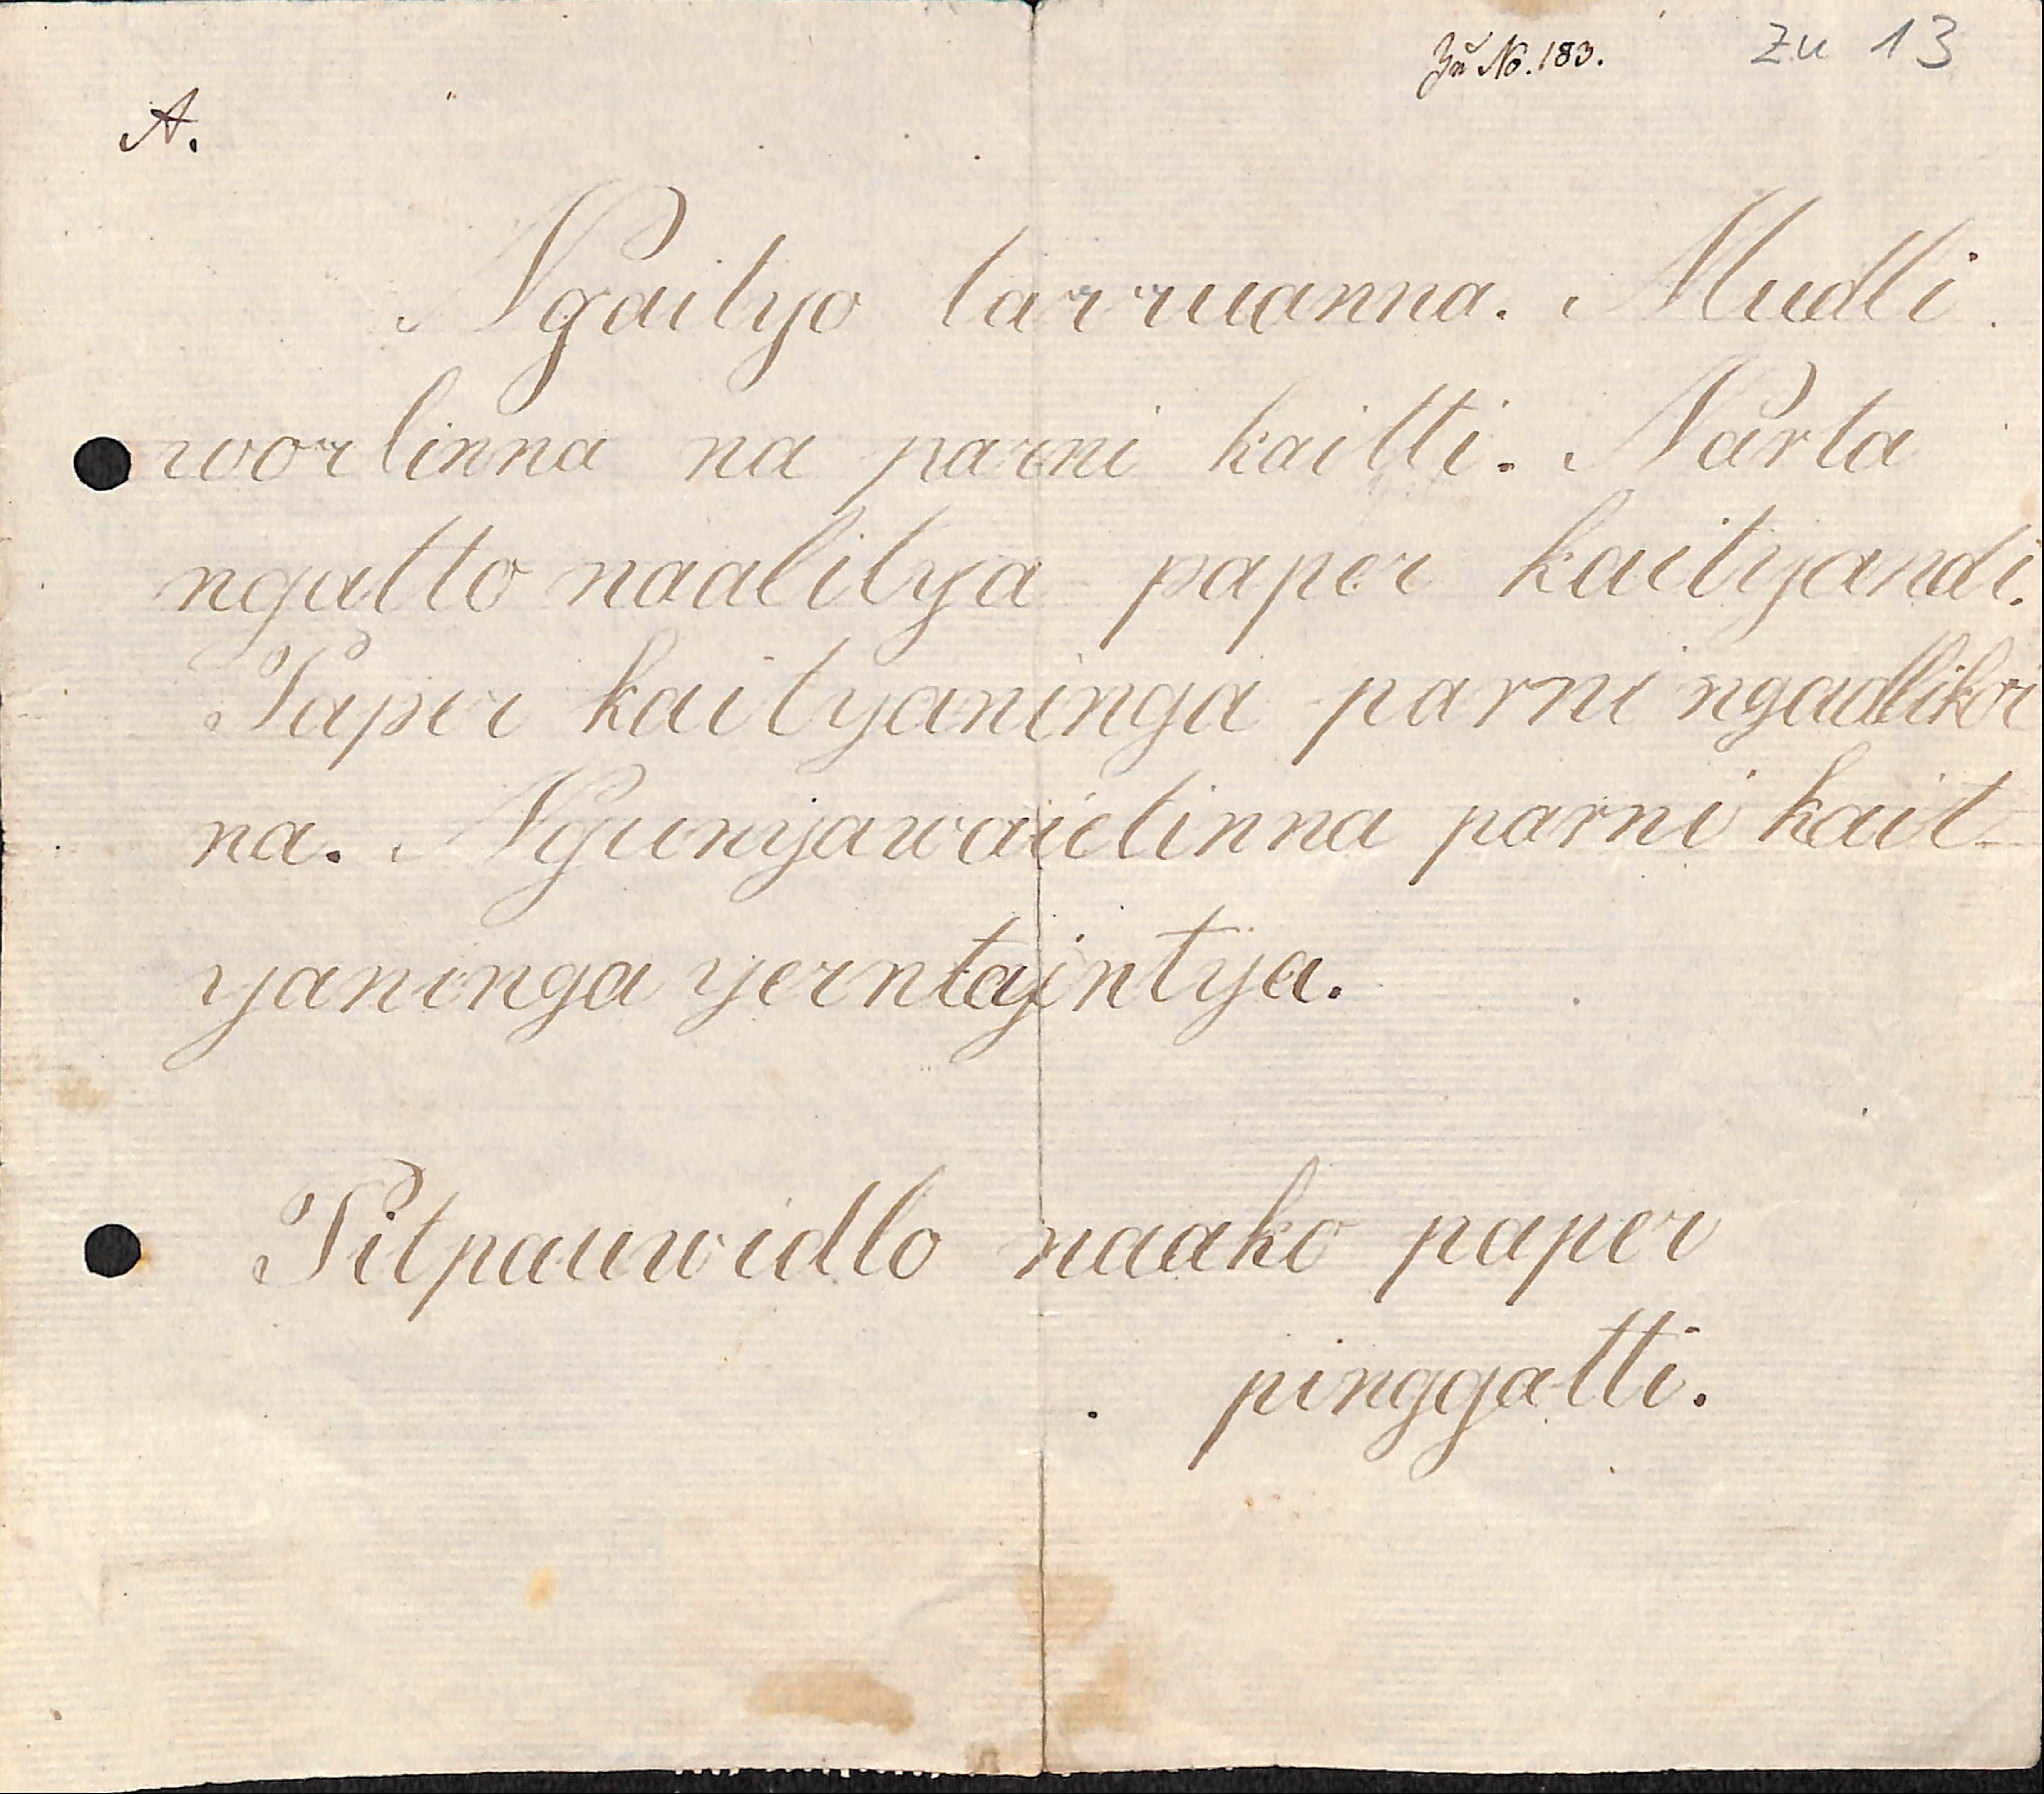 Zu No. 183. zu 13
A.
Ngaityo tarruanna. Mudli
worlinna na parni kaitti. Narta
ngatto naalitya paper kaityandi.
Paper kaityaninga parni ngadlikor
na. Ngunyawaietinna parni kait-
yaninga yerntayintya.
Pitpauwidlo naako paper
pinggatti.